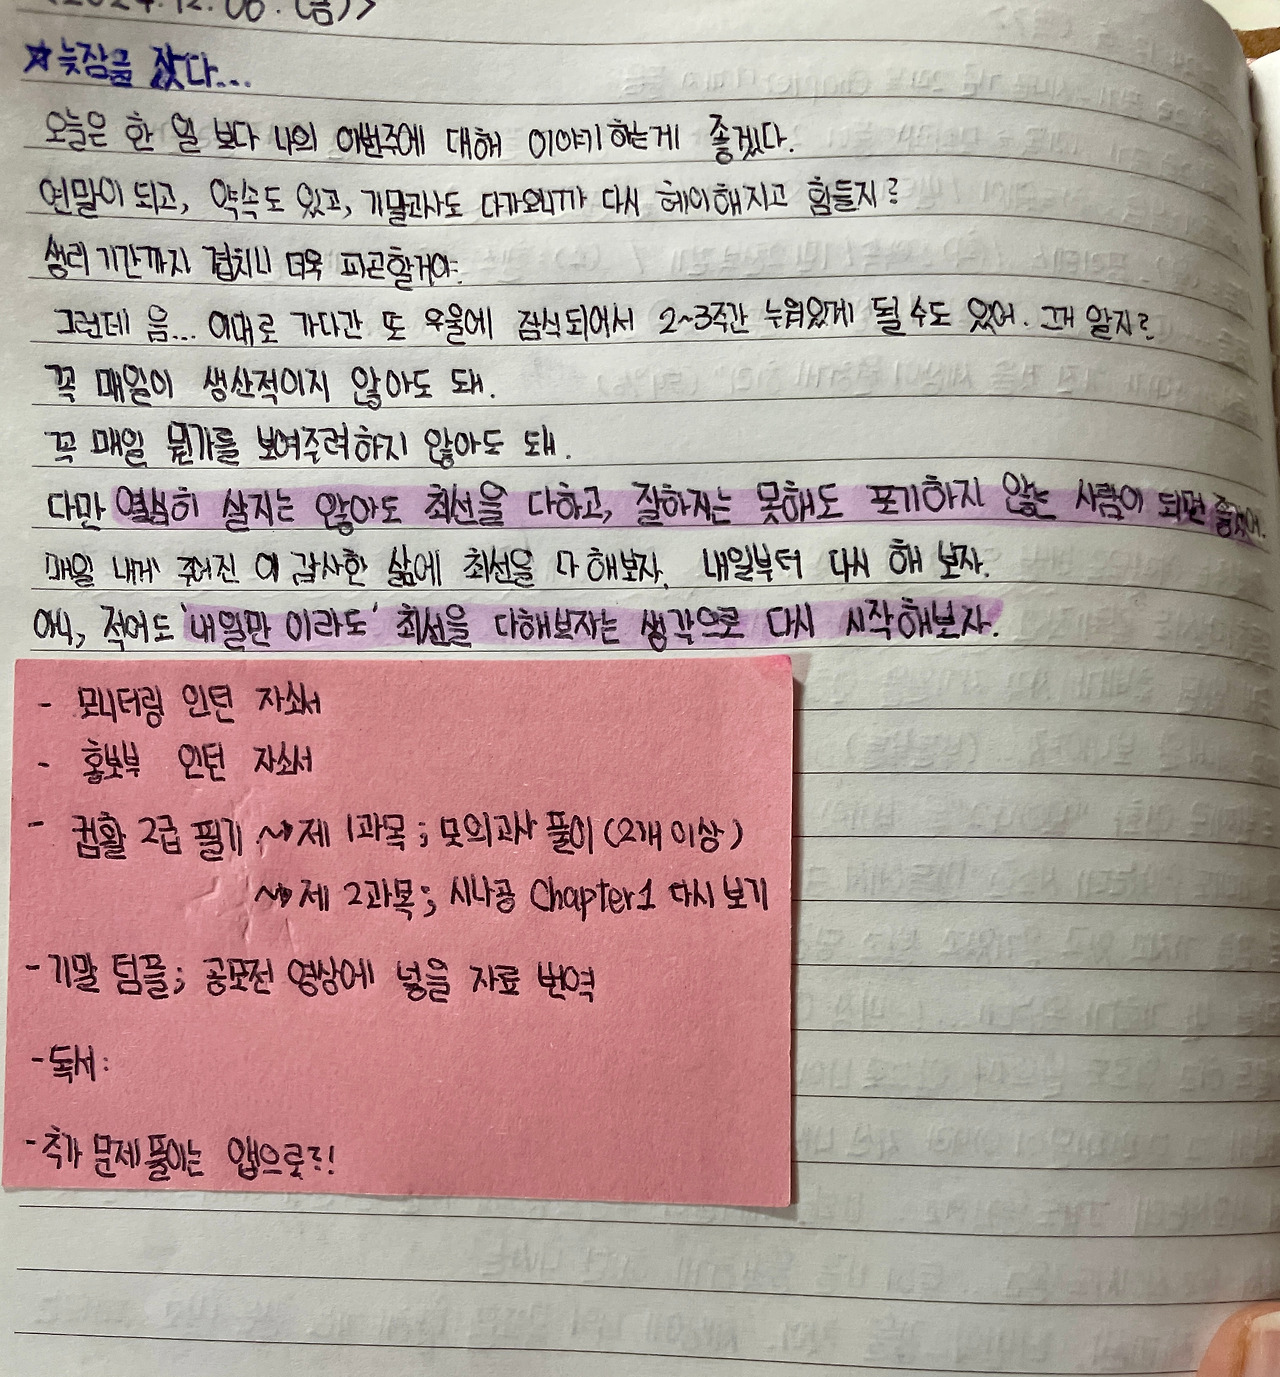 <2024.12.06.(금)>
☆늦잠을 잤다...
오늘은 한 일 보다 나의 이번주에 대해 이야기 하는게 좋겠다.
연말이 되고, 약속도 있고, 기말과사도 다가오니까 다시 헤이해지고 힘들지?
생리 기간까지 겹치니 더욱 피곤할거야.
그런데 음... 이대로 가다간 또 우울에 잠식되어서 2~3주간 누워있게 될 수도 있어. 그거 알지?
꼭 매일이 생산적이지 않아도 돼.
꼭 매일 뭔가를 보여주려하지 않아도 돼.
다만 열심히 살지는 않아도 최선을 다하고, 잘하지는 못해도 포기하지 않는 사람이 되면 좋겠어.
매일 내게 주어진 이 감사한 삶에 최선을 다 해보자. 내일부터 다시 해 보자.
아니, 적어도 '내일만 이라도' 최선을 다해보자는 생각으로 다시 시작해보자.
- 모니터링 인턴 자소서
- 홍보부 인턴 자소서
- 컴활 2급 필기 ~> 제 1과목 ; 모의고사 풀이 (2개 이상)
~> 제 2과목 ; 시나공 Chapter 1 다시 보기
- 기말 텀플 ; 공모전 영상에 넣을 자료 번역
- 독서 :
- 추가 문제 풀이는 앱으로 ?!